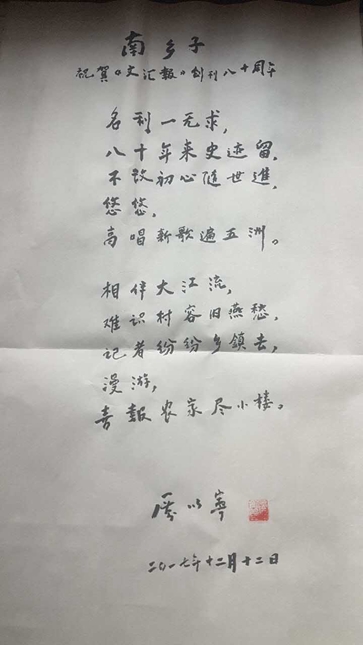 南乡子
祝贺《文汇報》创刊八十周年
名利一无求，
八十年来史迹留，
不改初心随世進，
悠悠，
高唱新歌遍五洲。
相伴大江流，
难识村容旧燕愁，
记者纷纷乡镇去，
漫游，
喜報农家尽小楼。
厉以宁
二〇一七年十二月十二日